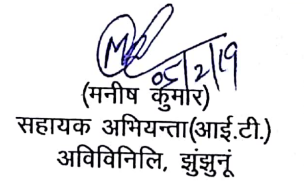 05/2/19
(मनीष कुमार)
सहायक अभियन्ता(आई.टी.)
अविविनिलि, झुंझुनूं